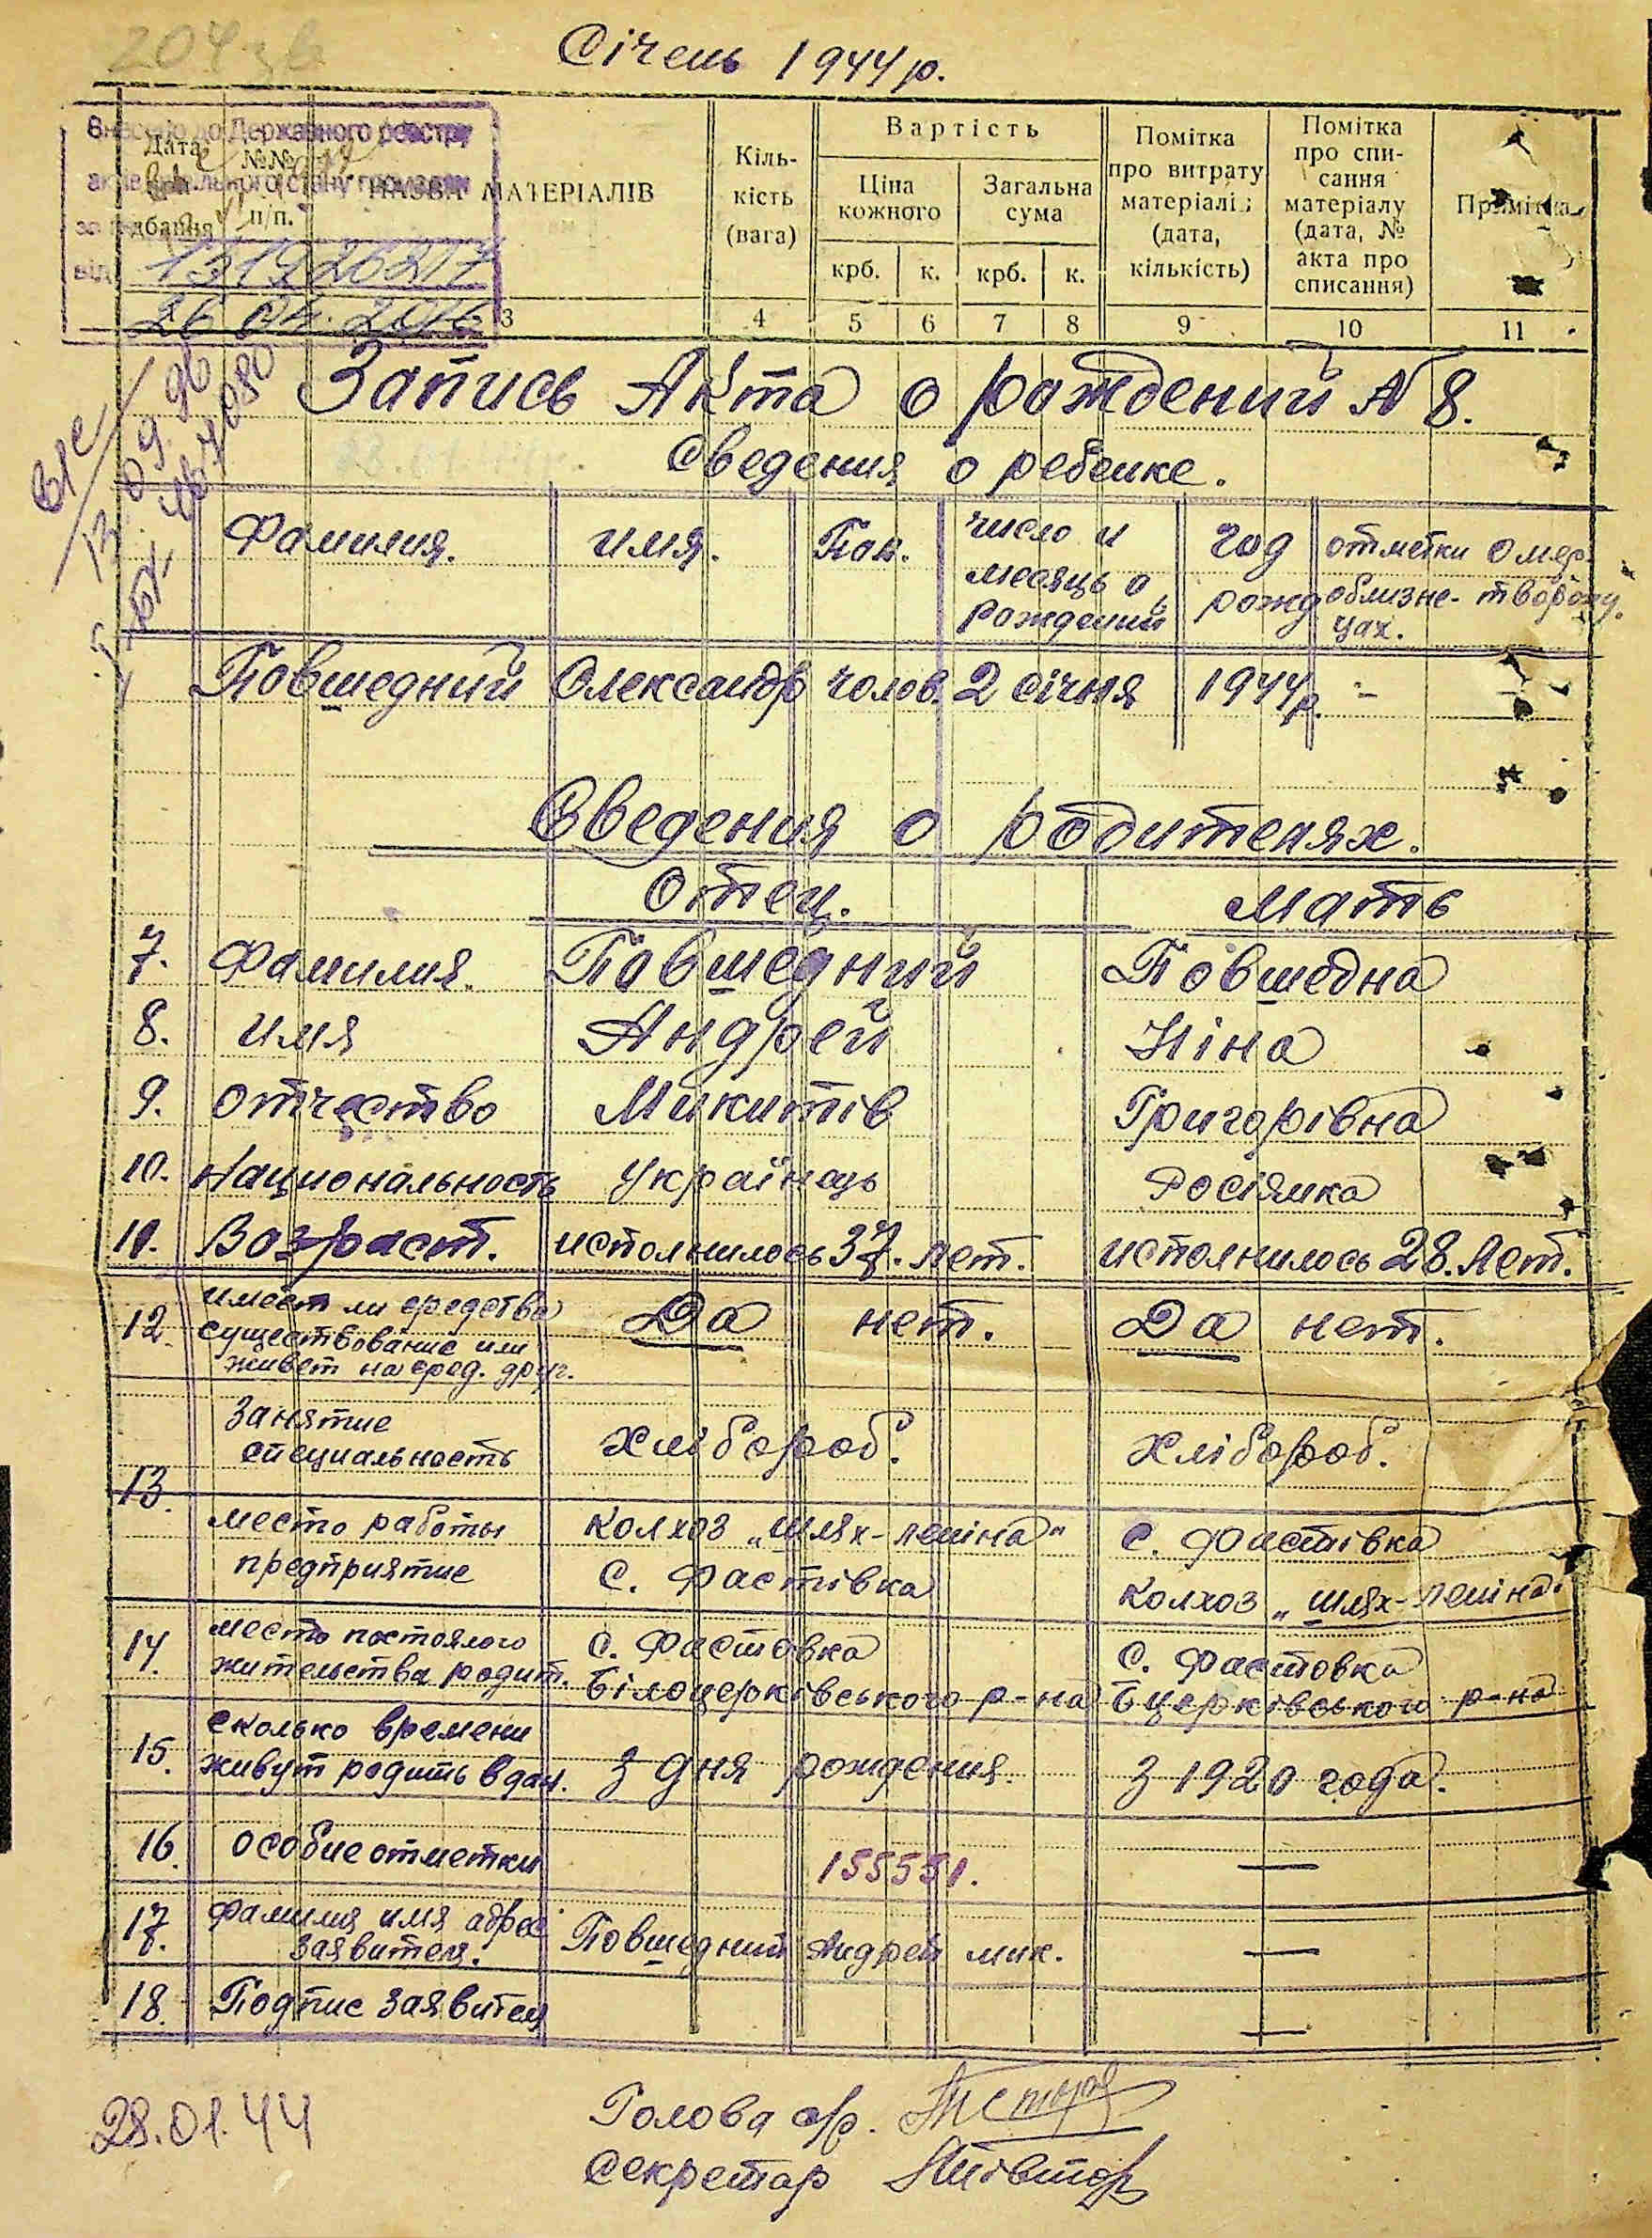 204зв
Січень 1944 р.
Внесено до Державного реєстру
актів цивільного стану громадян
за
від 1319226217
26 04. 2016
Дата придбання
№№ п/п.
НАЗВА МАТЕРІАЛІВ
Кіль-
кість
(вага)
Вартість
Ціна
кожного
Загальна
сума
крб. к. крб. к.
Помітка
про витрату
матеріалів
(дата,
кількість)
Помітка
про спи-
сання
матеріалу
(дата, №
акта про
списання)
Примітка
3 4 5 6 7 8 9 10 11
Запись Акта о рождений № 8.
Сведения о ребенке.
Фамилия. имя. Пол. число и месяць о рождений год рожд отметки о мер- облизне- творожд. цах.
Повшедний Олександр чолов. 2 січня 1944 р. –
Сведения о родителях.
Отец. Мать
7. Фамилия. Повшедний Повшедна
8. имя Андрей Ніна
9. отчество Микитів Григорівна
10. Национальность Українець Росіянка
11. Возраст. исполнилось 37. лет. исполнилось 28. лет.
12. имеет ли средства Да нет. Да нет.
существование или
живет на сред. друг.
13. Занятие
специальность хлібороб. хлібороб.
место работы колхоз „шлях-леніна" с. Фастівка
предприятие с. Фастівка колхоз „шлях-леніна"
14. место постоялого с. Фастовка с. Фастовка
жительства родит. Білоцерківського р-на Бцерківського р-на
15. сколько времени
живут родить в дан. З дня рождения З 1920 года.
16. особие отметки 155551. —
17. фамилия имя адрес
заявителя. Повшедний Андрей мик. —
18. Подпис заявителя —
28.01.44
Голова с/р.
Секретар